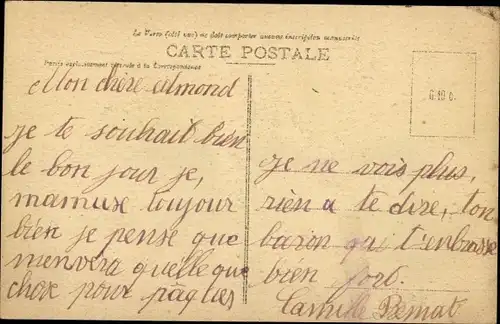 Le Verso (côté vue) ne doit comporter aucune inscription manuscrite
CARTE POSTALE
Partie exclusivement réservée à la Correspondance
Mon chère edmond
je te souhait bien
le bon jour je,
mamuse toujour
bien je pense que
menvera quelle que
chose pour pâques
je ne vois plus,
rien a te dire, ton
baron qui t'enbrasse
bien fort.
Camille Bernat